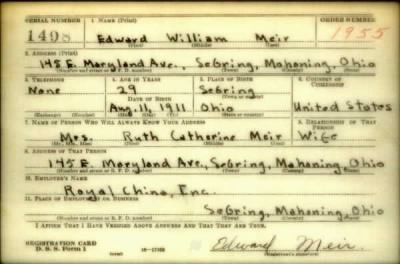 SERIAL NUMBER 1. NAME (Print) ORDER NUMBER
1498 Edward William Meir 1955
(First) (Middle) (Last)
2. ADDRESS (Print)
145 E. Maryland Ave., Sebring, Mahoning, Ohio
(Number and street or R. F. D. number) (Town) (County) (State)
3. TELEPHONE 4. AGE IN YEARS 5. PLACE OF BIRTH 6. COUNTRY OF CITIZENSHIP
None 29 Sebring
DATE OF BIRTH
Aug. 11, 1911 Ohio United States
7. NAME OF PERSON WHO WILL ALWAYS KNOW YOUR ADDRESS 8. RELATIONSHIP OF THAT PERSON
Mrs. Ruth Catherine Meir Wife
9. ADDRESS OF THAT PERSON
145 E. Maryland Ave., Sebring, Mahoning, Ohio
(Number and street or R. F. D. number) (Town) (County) (State)
10. EMPLOYER'S NAME
Royal China, Inc.
11. PLACE OF EMPLOYMENT OR BUSINESS
Sebring, Mahoning, Ohio
(Number and street or R. F. D. number) (Town) (County) (State)
I AFFIRM THAT I HAVE VERIFIED ABOVE ANSWERS AND THAT THEY ARE TRUE.
REGISTRATION CARD
D. S. S. Form 1 Edward Meir